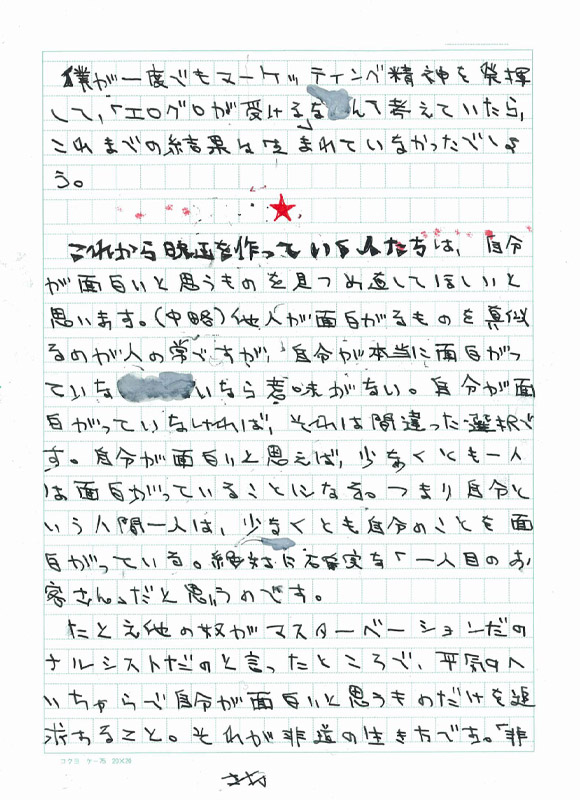 僕が一度でもマーケッティング精神を発揮
して、「エログロが受けるな んて考えていたら、
これまでの結果は生まれていなかったでしょ
う。
★
これから映画を作っている人たちは、自分
が面白いと思うものを見つめ直してほしいと
思います。(中略)他人が面白がるものを真似
るのが人の常ですが、自分が本当に面白がっ
ていな いなら意味がない。自分が面
白がっていなければ、それは間違った選択で
す。自分が面白いと思えば、少なくとも一人
は面白がっていることになる。つまり自分と
いう人間一人は、少なくとも自分のことを面
白がっている。絶対に確実な「一人目のお
客さん」だと思うのです。
たとえ他の奴がマスターベーションだの
ナルシストだのと言ったところで、平気のへ
いちゃらで自分が面白いと思うものだけを追
求すること。それが非道の生き方です。「非
コクヨ ケ-35 20×20